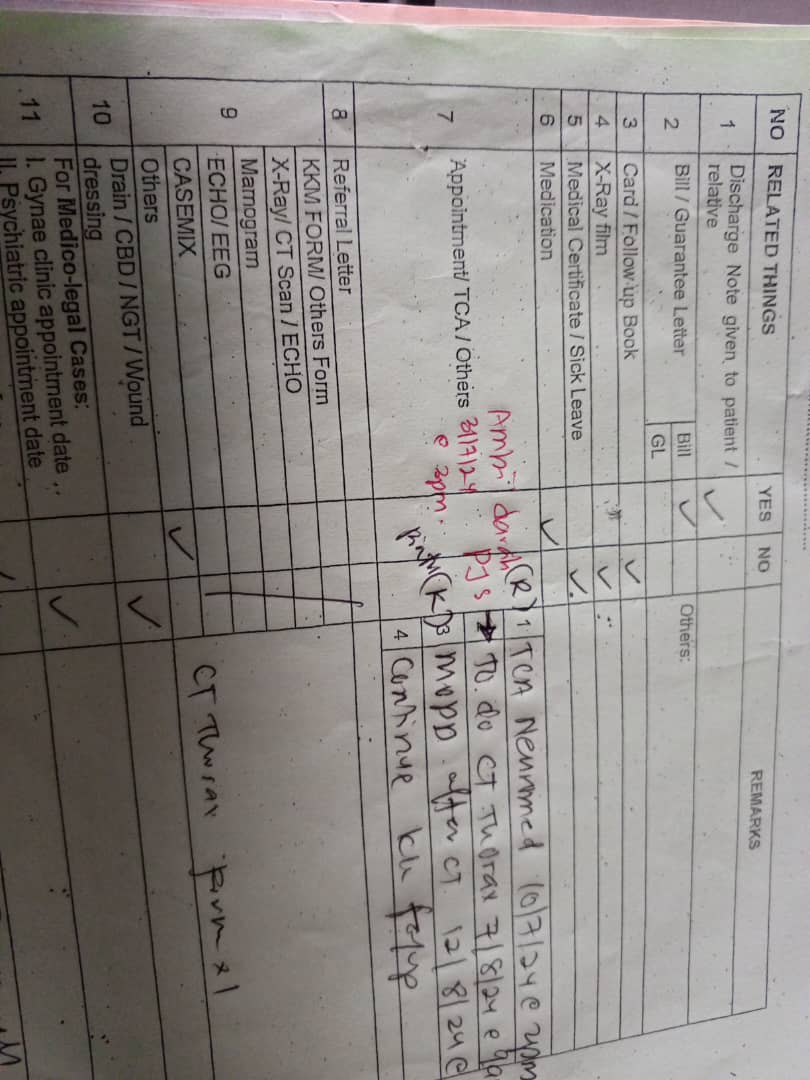 NO RELATED THINGS YES NO REMARKS
1 Discharge Note given to patient / relative ✓
2 Bill / Guarantee Letter Bill ✓ Others:
GL
3 Card / Follow-up Book ✓
4 X-Ray film ✓
5 Medical Certificate / Sick Leave ✓
6 Medication ✓
7 Appointment/ TCA / Others
Ambil darah (R)
31/7/24 PJs
@ 3pm.
1 TCA Neuromed 10/7/24 @ 2pm
→ To do CT Thorax 7/8/24 @
3 MOPD after CT. 12/8/24 @
4 Continue
8 Referral Letter
9 KKM FORM/ Others Form
X-Ray/ CT Scan / ECHO
Mamogram
ECHO/ EEG
CASEMIX ✓
Others
CT Thorax x1
10 Drain / CBD / NGT / Wound dressing ✓
11 For Medico-legal Cases: ✓
I. Gynae clinic appointment date
II. Psychiatric appointment date